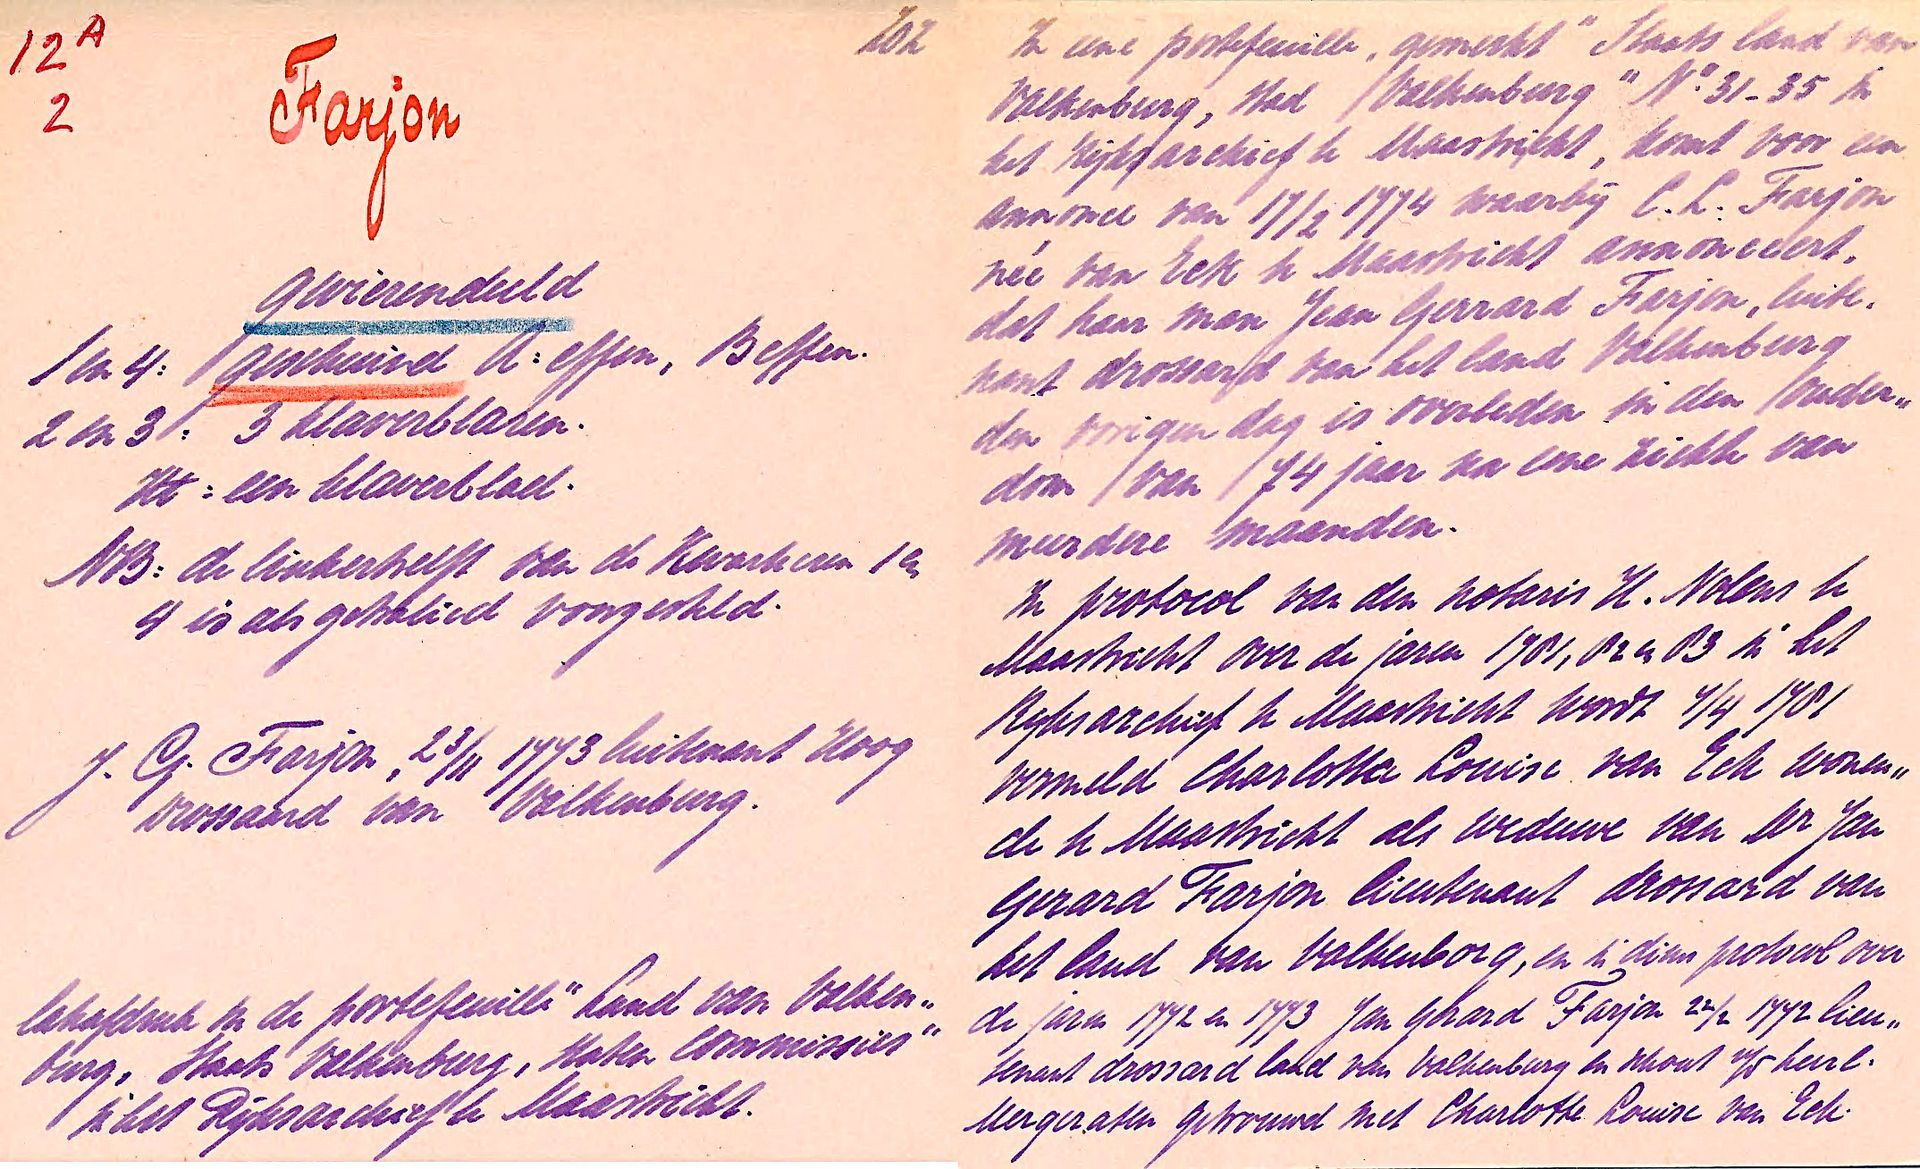 12A
2
Farjon
gevierendeeld
1 en 4: gescheurd A: effen, B effen.
2 en 3: 3 klaverblaren.
Ht: een klaverblad.
NB: de linkerhelft van de Kwartieren 1 en
4 is als getralied voorgesteld.
J. G. Farjon, 23/11 1773 luitenant Hoog
drossaard van Valkenburg.
lakafdruk in de portefeuille "Land van Valken„
burg, Staats Valkenburg, Staten Commissies"
in het Rijksarchief te Maastricht.
202
In eene portefeuille, gemerkt "Staats land van
Valkenburg, stad Valkenburg" No. 31-35 in
het Rijksarchief te Maastricht, komt voor een
annonce van 17/2 1774 waarbij C. L. Farjon
née van Eck te Maastricht annonceert,
dat haar man Jean Gerrard Farjon, luite.
nant drossard van het land Valkenburg
den vorigen dag is overleden in den ouder„
dom van 74 jaar na eene ziekte van
meerdere maanden.
In protocol van den notaris H. Nolens te
Maastricht over de jaren 1781, 82 en 83 in het
Rijksarchief te Maastricht wordt 4/4 1781
vermeld Charlotta Louise van Eck wonen„
de te Maastricht als weduwe van Mr Jan
Gerard Farjon lieutenant drossard van
het land van Valkenborg, en in diens protocol over
de jaren 1772 en 1773 Jan Gerard Farjon 22/2 1772 lieu„
tenant drossard land van Valkenburg en schout heerl.
Mergeraten getrouwd met Charlotte Louise van Eck.